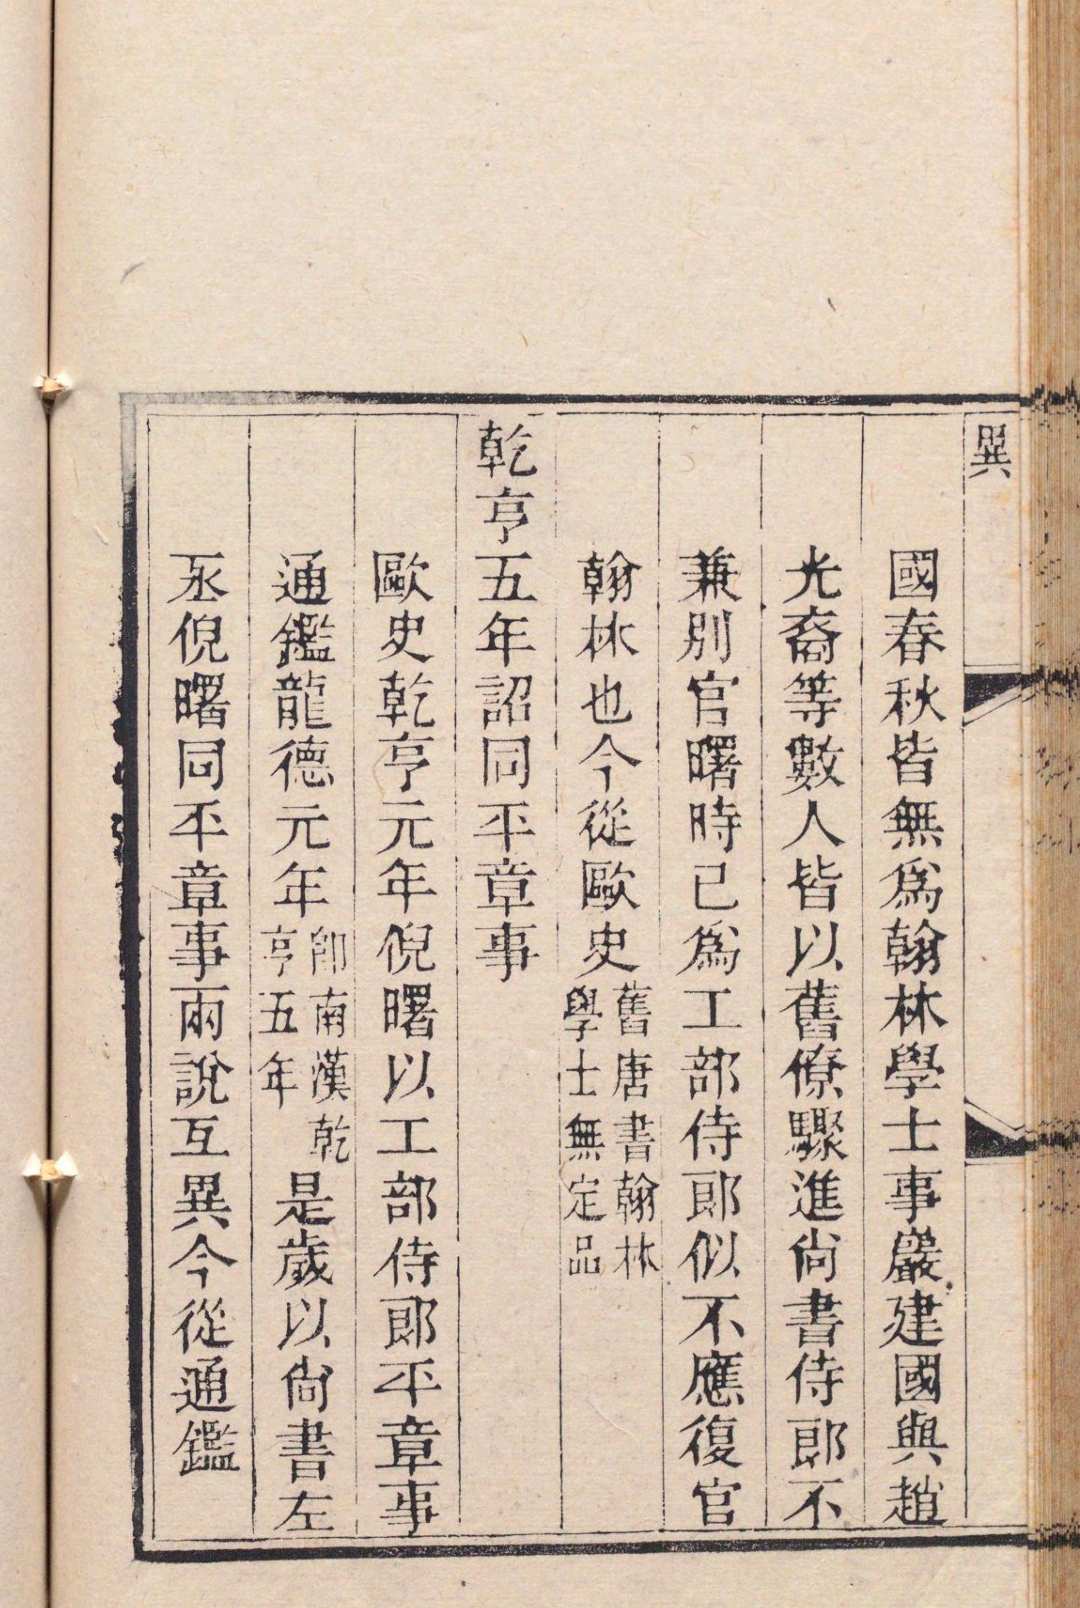 異
國春秋皆無爲翰林學士事巖建國與趙
光裔等數人皆以舊僚驟進尙書侍郎不
兼別官曙時已爲工部侍郎似不應復官
翰林也今從歐史舊唐書翰林學士無定品
乾亨五年詔同平章事
歐史乾亨元年倪曙以工部侍郎平章事
通鑑龍德元年卽南漢乾亨五年是歲以尙書左
丞倪曙同平章事兩說互異今從通鑑